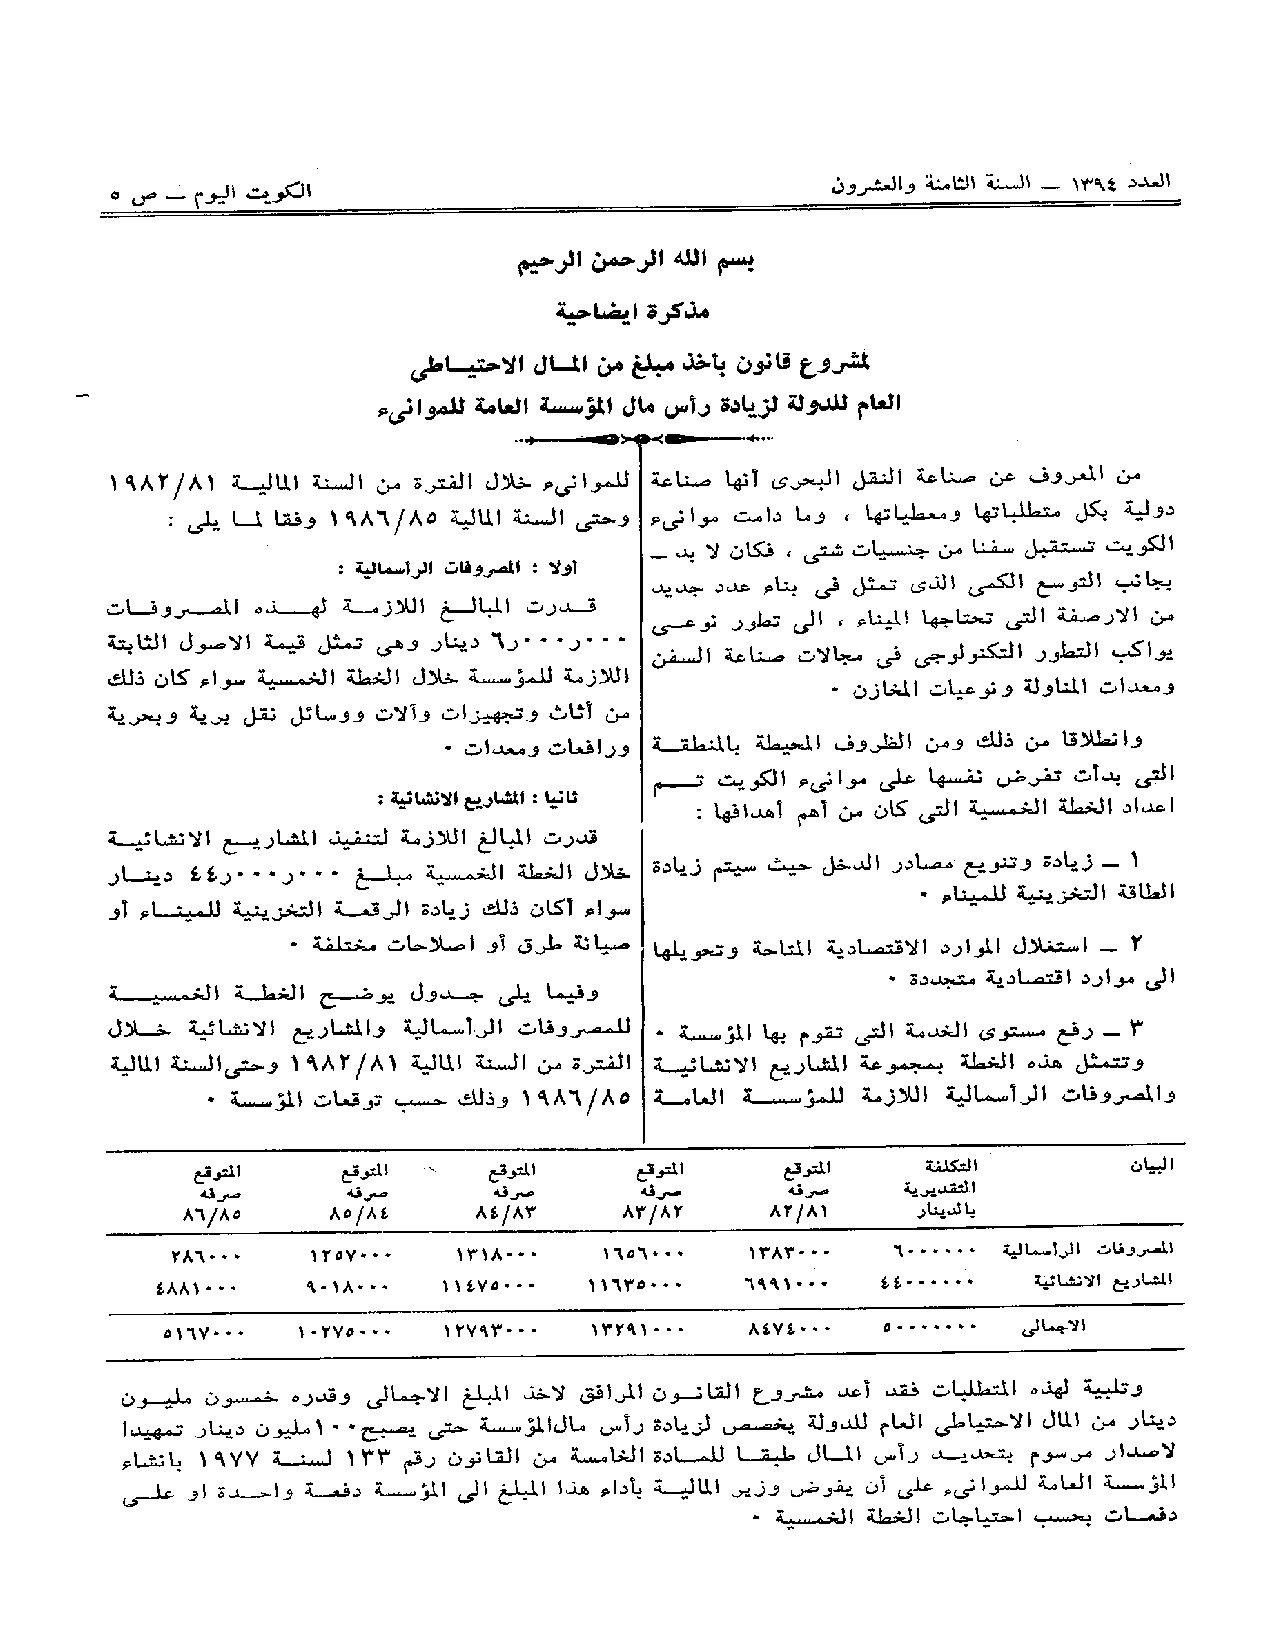 العدد ١٣٩٤ — السنة الثامنة والعشرون
الكويت اليوم — ص ٥
بسم الله الرحمن الرحيم
مذكرة ايضاحية
لمشروع قانون بأخذ مبلغ من المــال الاحتيــاطي
العام للدولة لزيادة رأس مال المؤسسة العامة للموانىء
من المعروف عن صناعة النقل البحرى أنها صناعة
دولية بكل متطلباتها ومعطياتها ، وما دامت موانىء
الكويت تستقبل سفنا من جنسيات شتى ، فكان لا بد —
بجانب التوسع الكمى الذى تمثل فى بناء عدد جديد
من الارصفة التى تحتاجها الميناء ، الى تطور نوعــى
يواكب التطور التكنولوجى فى مجالات صناعة السفن
ومعدات المناولة ونوعيات المخازن ٠
وانطلاقا من ذلك ومن الظروف المحيطة بالمنطقــة
التى بدأت تفرض نفسها على موانىء الكويت تــم
اعداد الخطة الخمسية التى كان من أهم أهدافها :
١ — زيادة وتنويع مصادر الدخل حيث سيتم زيادة
الطاقة التخزينية للميناء ٠
٢ — استغلال الموارد الاقتصادية المتاحة وتحويلها
الى موارد اقتصادية متجددة ٠
٣ — رفع مستوى الخدمة التى تقوم بها المؤسسة ٠
وتتمثل هذه الخطة بمجموعة المشاريع الانشائيــة
والمصروفات الرأسمالية اللازمة للمؤسســة العامــة
للموانىء خلال الفترة من السنة الماليــة ١٩٨٢/٨١
وحتى السنة المالية ١٩٨٦/٨٥ وفقا لمــا يلى :
أولا : المصروفات الرأسمالية :
قــدرت المبالــغ اللازمــة لهــذه المصــروفــات
٠٠٠ر٠٠٠ر٦ دينار وهى تمثل قيمة الاصول الثابتة
اللازمة للمؤسسة خلال الخطة الخمسية سواء كان ذلك
من أثاث وتجهيزات وآلات ووسائل نقل برية وبحرية
ورافعات ومعدات ٠
ثانيا : المشاريع الانشائية :
قدرت المبالغ اللازمة لتنفيذ المشاريــع الانشائيــة
خلال الخطة الخمسية مبلــغ ٠٠٠ر٠٠٠ر٤٤ دينــار
سواء أكان ذلك زيادة الرقعــة التخزينية للمينــاء أو
صيانة طرق أو اصلاحات مختلفة ٠
وفيما يلى جــدول يوضــح الخطــة الخمسيــة
للمصروفات الرأسمالية والمشاريع الانشائية خــلال
الفترة من السنة المالية ١٩٨٢/٨١ وحتى السنة المالية
١٩٨٦/٨٥ وذلك حسب توقعات المؤسسة ٠
البيان التكلفة المتوقع المتوقع المتوقع المتوقع المتوقع
التقديرية صرفه صرفه صرفه صرفه صرفه
بالدينار ٨٢/٨١ ٨٣/٨٢ ٨٤/٨٣ ٨٥/٨٤ ٨٦/٨٥
المصروفات الرأسمالية ٦٠٠٠٠٠٠ ١٣٨٣٠٠٠ ١٦٥٦٠٠٠ ١٣١٨٠٠٠ ١٢٥٧٠٠٠ ٢٨٦٠٠٠
المشاريع الانشائية ٤٤٠٠٠٠٠٠ ٦٩٩١٠٠٠ ١١٦٣٥٠٠٠ ١١٤٧٥٠٠٠ ٩٠١٨٠٠٠ ٤٨٨١٠٠٠
الاجمالى ٥٠٠٠٠٠٠٠ ٨٤٧٤٠٠٠ ١٣٢٩١٠٠٠ ١٢٧٩٣٠٠٠ ١٠٢٧٥٠٠٠ ٥١٦٧٠٠٠
وتلبية لهذه المتطلبات فقد أعد مشروع القانــون المرافق لاخذ المبلغ الاجمالى وقدره خمسون مليــون
دينار من المال الاحتياطى العام للدولة يخصص لزيادة رأس مال المؤسسة حتى يصبح ١٠٠ مليون دينار تمهيدا
لاصدار مرسوم بتحديــد رأس المــال طبقــا للمــادة الخامسة من القانون رقم ١٣٣ لسنــة ١٩٧٧ بانشاء
المؤسســة العامة للموانىء على أن يفوض وزير الماليــة بأداء هذا المبلغ الى المؤسسة دفعــة واحــدة او علــى
دفعــات بحسب احتياجات الخطة الخمسية ٠